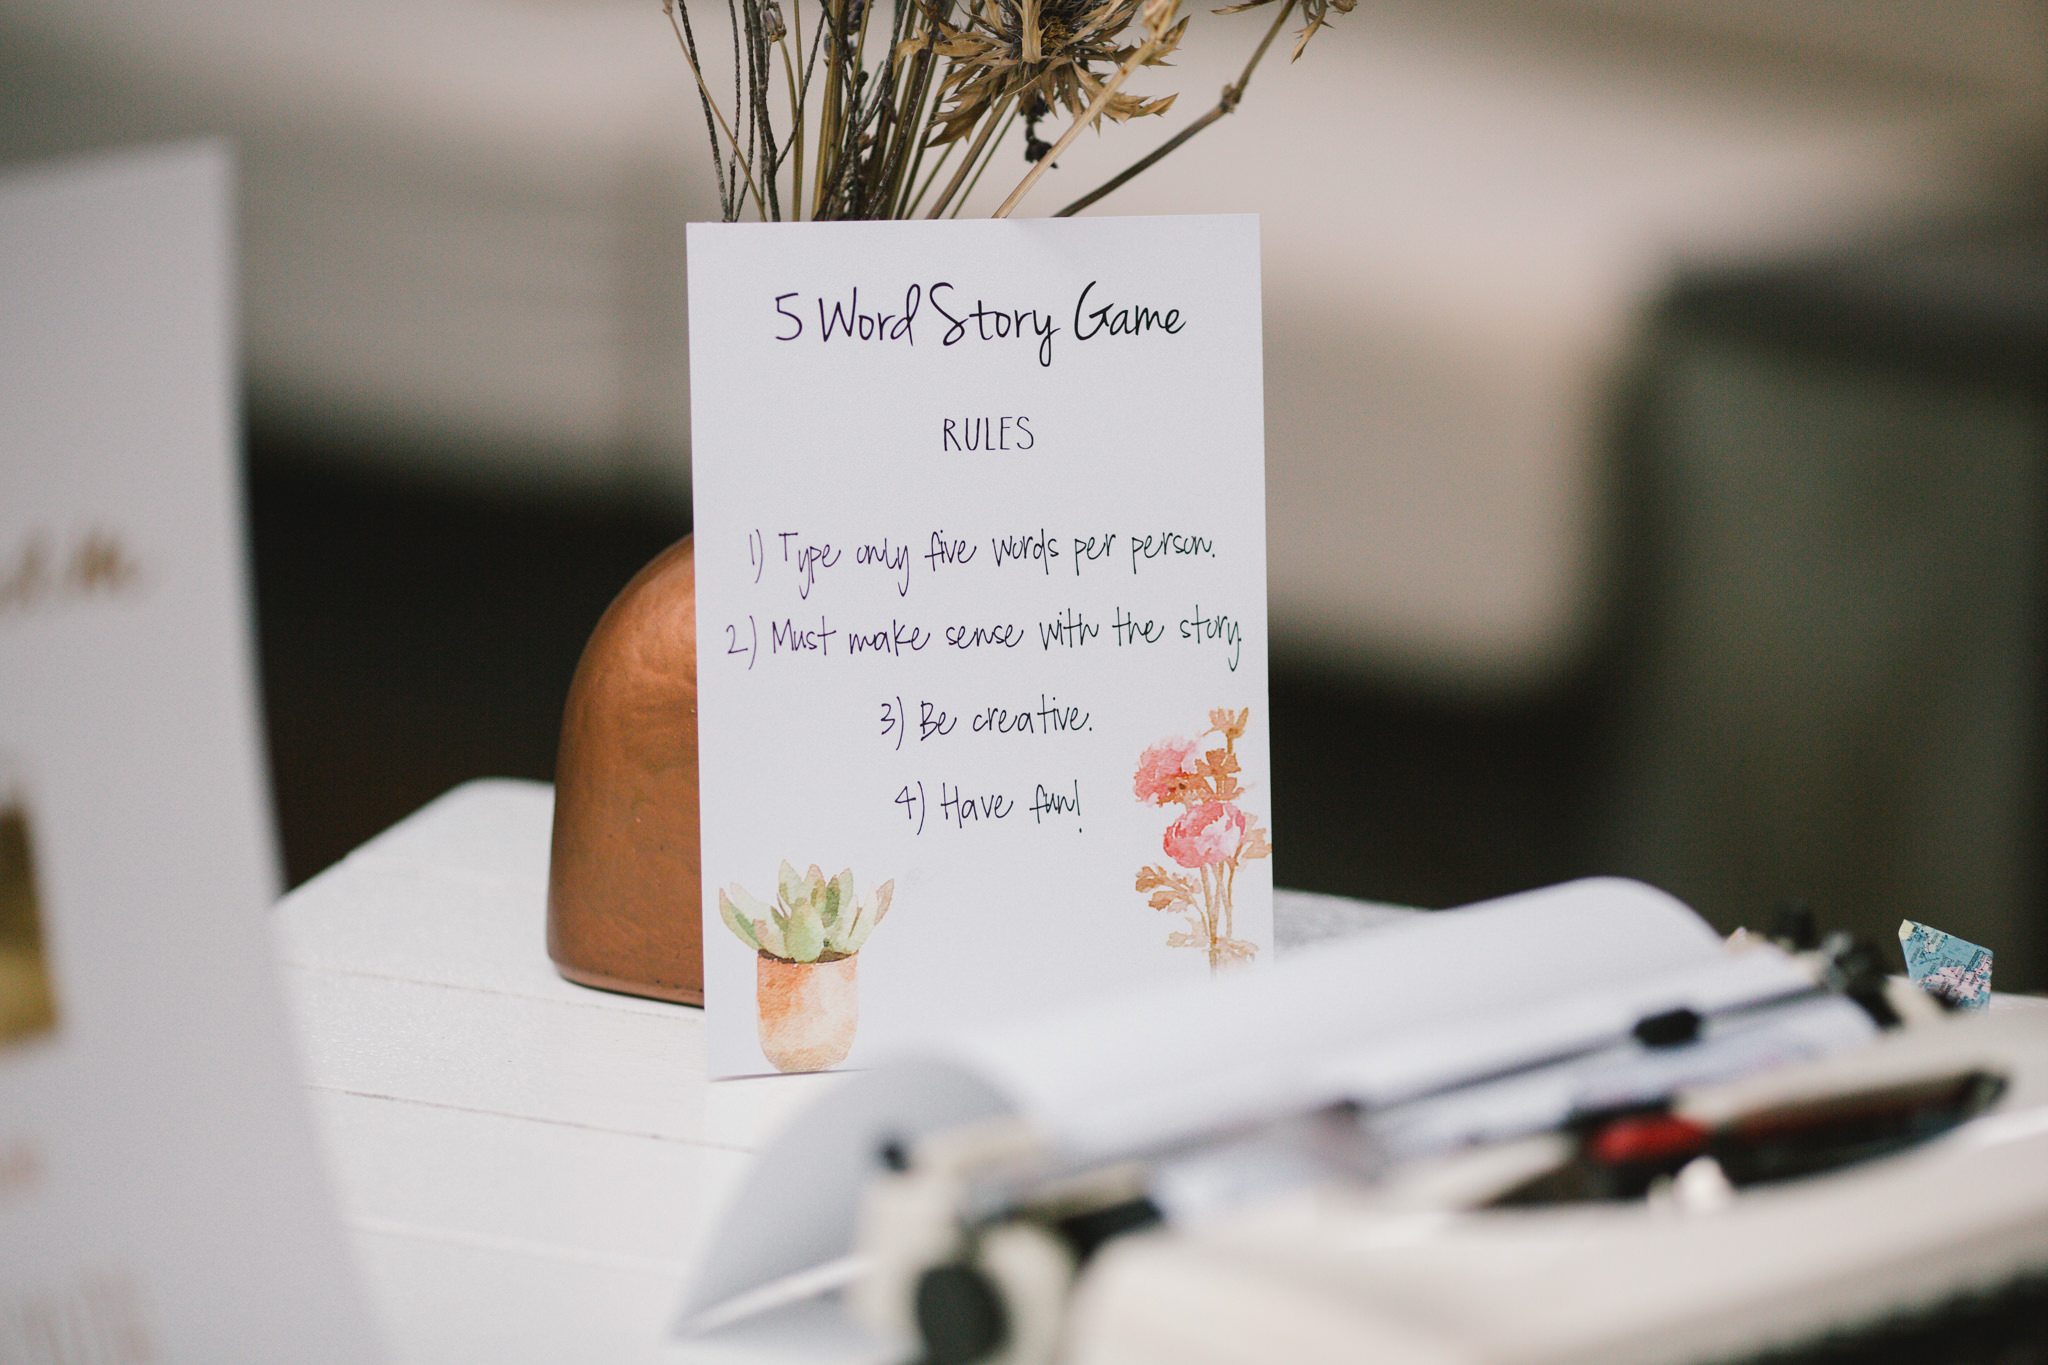 5 Word Story Game
RULES
1) Type only five words per person.
2) Must make sense with the story.
3) Be creative.
4) Have fun!